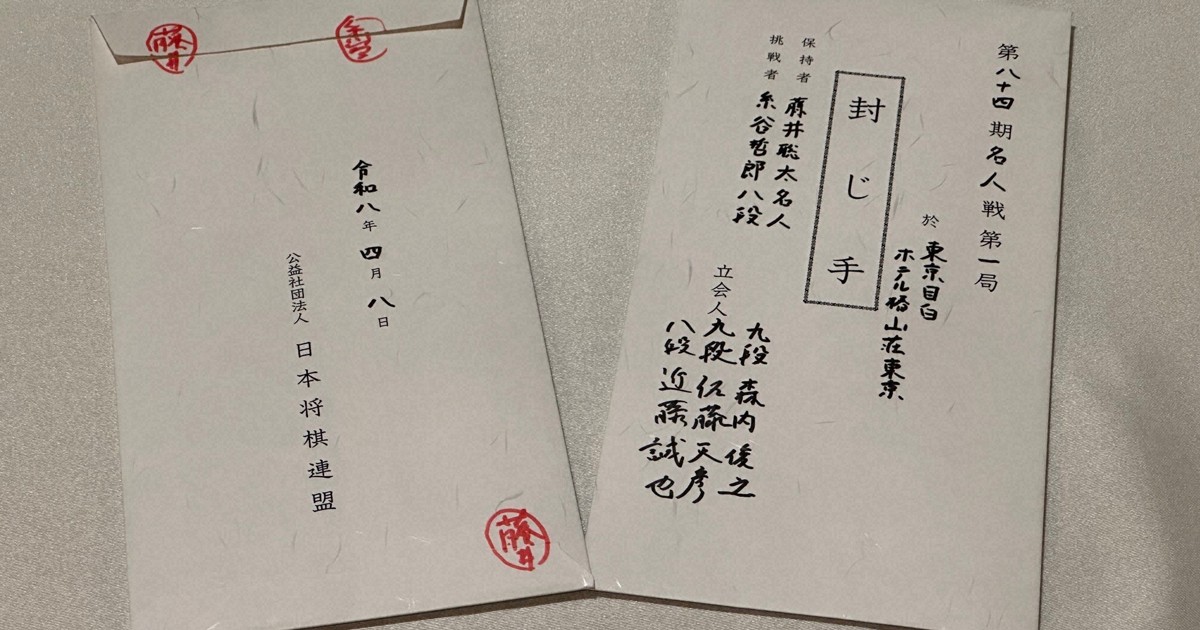 藤井
令和八年四月八日
公益社団法人 日本将棋連盟
藤井
第八十四期名人戦第一局
於 東京目白
ホテル椿山荘東京
封じ手
保持者 藤井聡太名人
挑戦者 糸谷哲郎八段
立会人 九段 森内俊之
九段 佐藤天彦
八段 近藤誠也